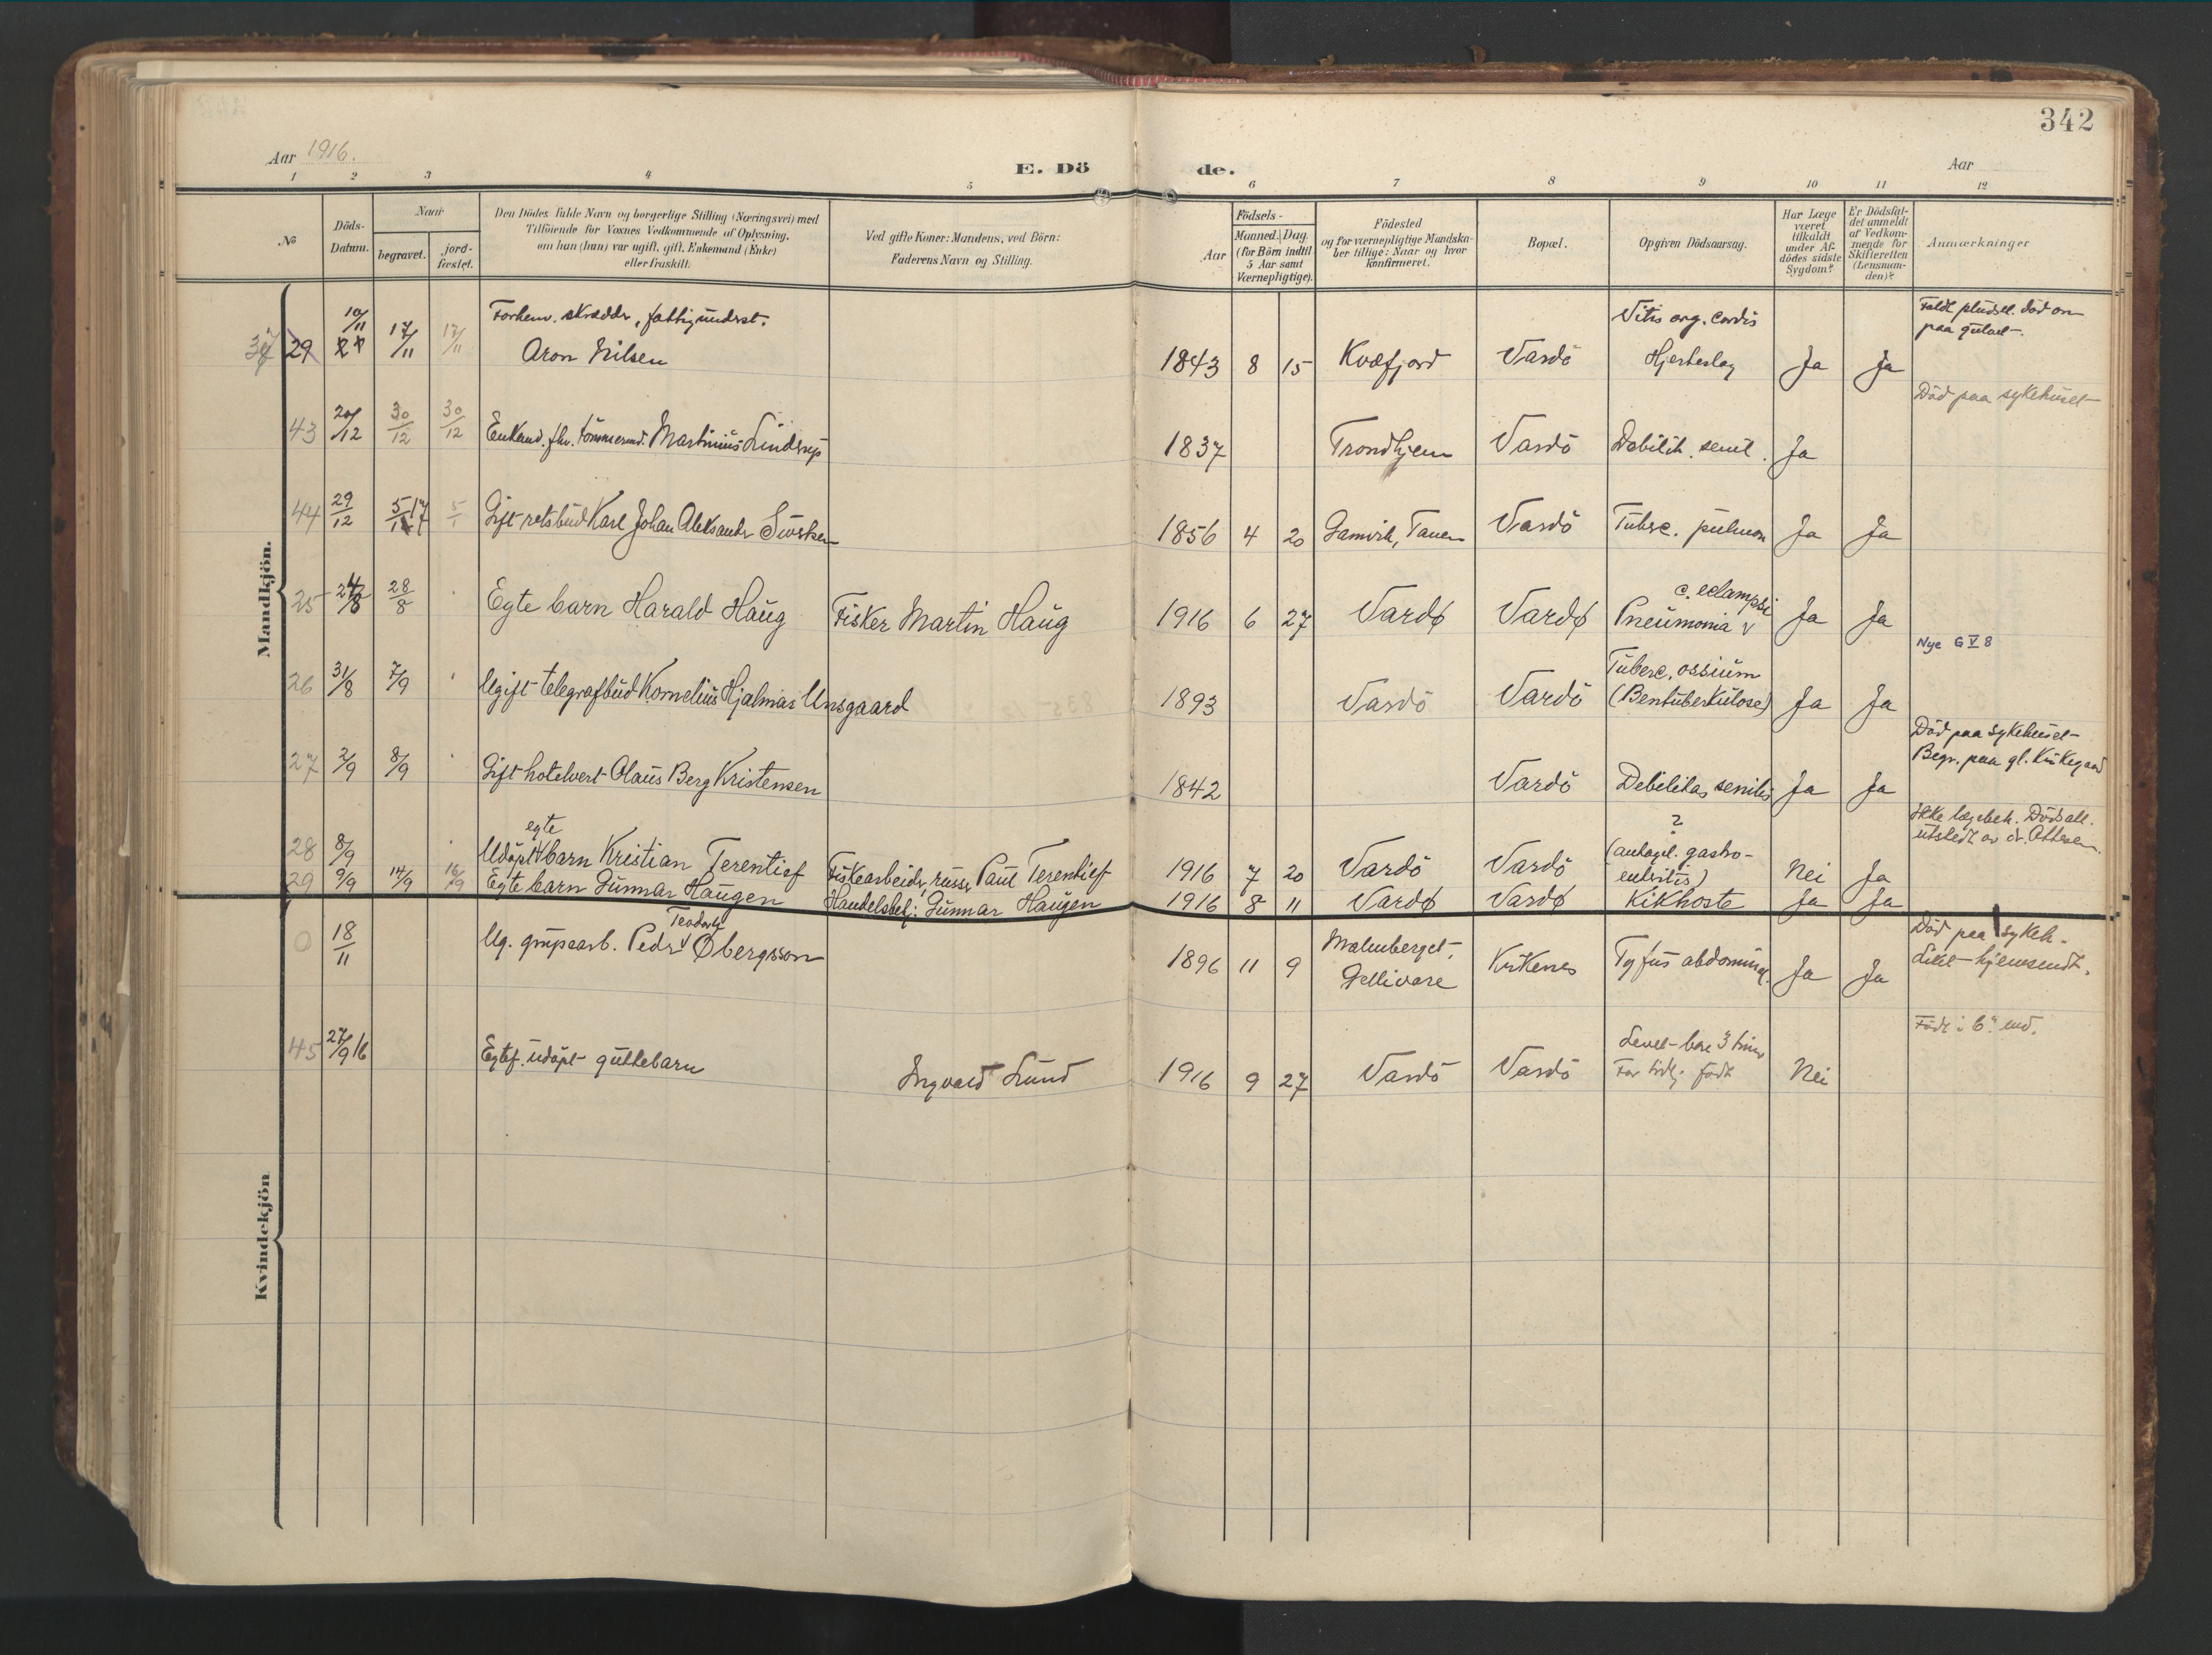 342
Aar 1916.
E. Dö de.
Aar
1 2 3 4 5 6 7 8 9 10 11 12
No
Döds-Datum.
Naar
begravet.
jord-fæstet.
Den Dödes fulde Navn og borgerlige Stilling (Næringsvei) med
Tilföiende for Voxnes Vedkommende af Oplysning,
om han (hun) var ugift, gift, Enkemand (Enke)
eller fraskilt.
Ved gifte Koner: Mandens, ved Börn:
Faderens Navn og Stilling.
Födsels-
Aar
Maaned. Dag.
(for Börn indtil
5 Aar samt
Værnepligtige).
Födested
og for værnepligtige Mandska-
ber tillige: Naar og hvor
konfirmeret.
Bopæl.
Opgiven Dödsaarsag.
Har Læge
været
tilkaldt
under Af-
dödes sidste
Sygdom?
Er Dödsfal-
det anmeldt
af Vedkom-
mende for
Skifteretten
(Lensman-
den)?
Anmærkninger
Mandkjön.
29 10/11 17/11 17/11 Forhenv. skrædder, fattigunderst.
Aron Nilsen 1843 8 15 Kvæfjord Vardö Vitis org. cordis
Hjerteslag Ja Ja Faldt pludsel. död om
paa gulvet.
43 20/12 30/12 30/12 Enkemd. fhv. tömmermd. Martinius Lindrup 1837 Trondhjem Vardö Debilit. senil. Ja Död paa sykehuset
44 29/12 5/1 17 5/1 Gift retsbud Karl Johan Aleksander Sivertsen 1856 4 20 Gamvik, Tanen Vardö Tuberc. pulmon Ja Ja
25 24/8 28/8 Egte barn Harald Haug Fisker Martin Haug 1916 6 27 Vardø Vardø Pneumonia c. eclampsi Ja Ja
Nye G V 8
26 31/8 7/9 Ugift telegrafbud Kornelius Hjalmar Unsgaard 1893 Vardö Vardö Tuberc. ossium
(Bentuberkulose) Ja Ja
27 2/9 8/9 Gift hotelvert Olaus Berg Kristensen 1842 Vardö Debilitas senilis Ja Ja Död paa sykehuset
Begr. paa gl. Kirkegaard
28 8/9 Udöpt egte barn Kristian Terentief Fiskearbeider, russer Paul Terentief 1916 7 20 Vardö Vardö ?
(antagel. gastro-
enteritis) Nei Ja Ikke lægebeh. Dödsatt.
utstedt av dr. Ottesen.
29 9/9 14/9 16/9 Egte barn Gunnar Haugen Handelsbetj: Gunnar Haugen 1916 8 11 Vardø Vardø Kikhoste Ja Ja
0 18/11 Ug. grupearb. Peder Teodor Øbergsson 1896 11 9 Malmberget,
Gellivare Kirkenes Tyfus abdominal. Ja Ja Död paa sykeh.
Liket hjemsendt.
45 27/9 16 Egtef. udöpt guttebarn Ingvald Lund 1916 9 27 Vardö Vardö Levet bare 3 timer
For tidlig födt Nei Födt i 6. md.
Kvindekjön